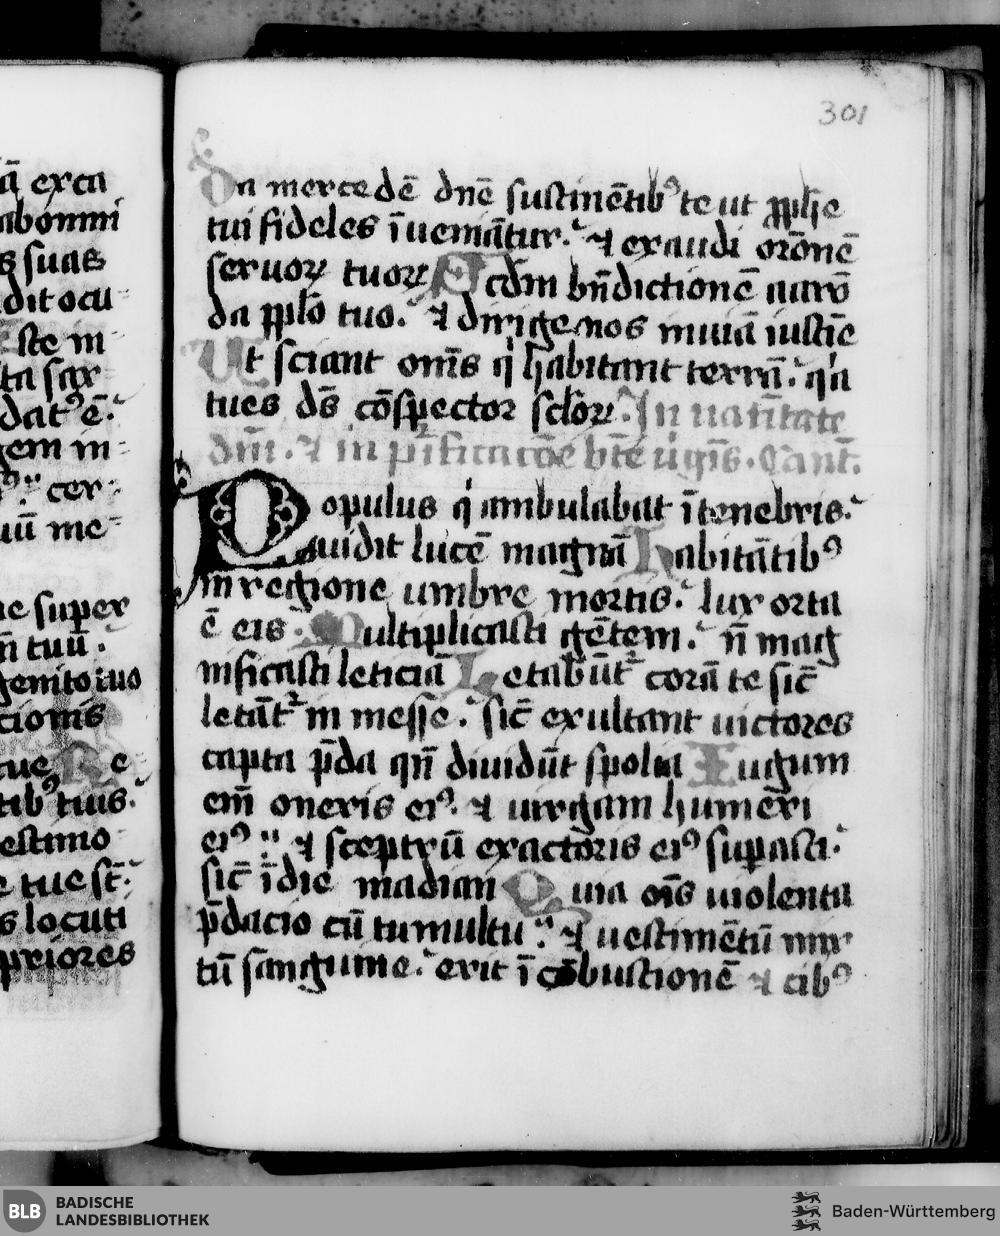 ā exca
abomni
s suas
dit ocu
ste in
ta sar
dat᷒ ē.
gem in
cer
uū me
ne super
n̄ tuū.
genito tuo
cionis
tue Re
tib᷒ tuis.
estimo
e tue st̄.
s locuti
priores
301
Da mercedē dn̄e sustinētib᷒ te ut ꝓph̄e
tui fideles īueniāt̄ur. ⁊ exaudi orōnē
seruoꝝ tuoꝝ Scd̄m bn̄dictionē aarō
da pplō tuo. ⁊ dirige nos in uiā iusticie
Ut sciant om̄s qͥ habitant terrā. qͥa
tu es ds̄ cōspector sc̄loꝝ. In natiūitate
dn̄i. ⁊ in pͥficatōe btē uͥgīs. Cant̄.
Populus qͥ ambulabat ī tenebris.
uidit lucē magnā habitātib᷒
in regione umbre mortis. lux orta
ē eis. Multiplicasti gētem. n̄ mag
nificasti leticiā Letabūt᷑ corā te sic̄
letāt᷑ in messe. sic̄ exultant uictores
capta p̄da qn̄ diuidūt spolia Iugum
em̄ oneris ei᷒. ⁊ uirgam humeri
ei᷒. ⁊ sceptrū exactoris ei᷒ supasti.
sic̄ ī die madian Quia oīs uiolenta
p̄dacio cū tumultu. ⁊ uestimētū mix
tū sanguine. erit ī cōbustionē ⁊ cib᷒
BLB
BADISCHE
LANDESBIBLIOTHEK
Baden-Württemberg